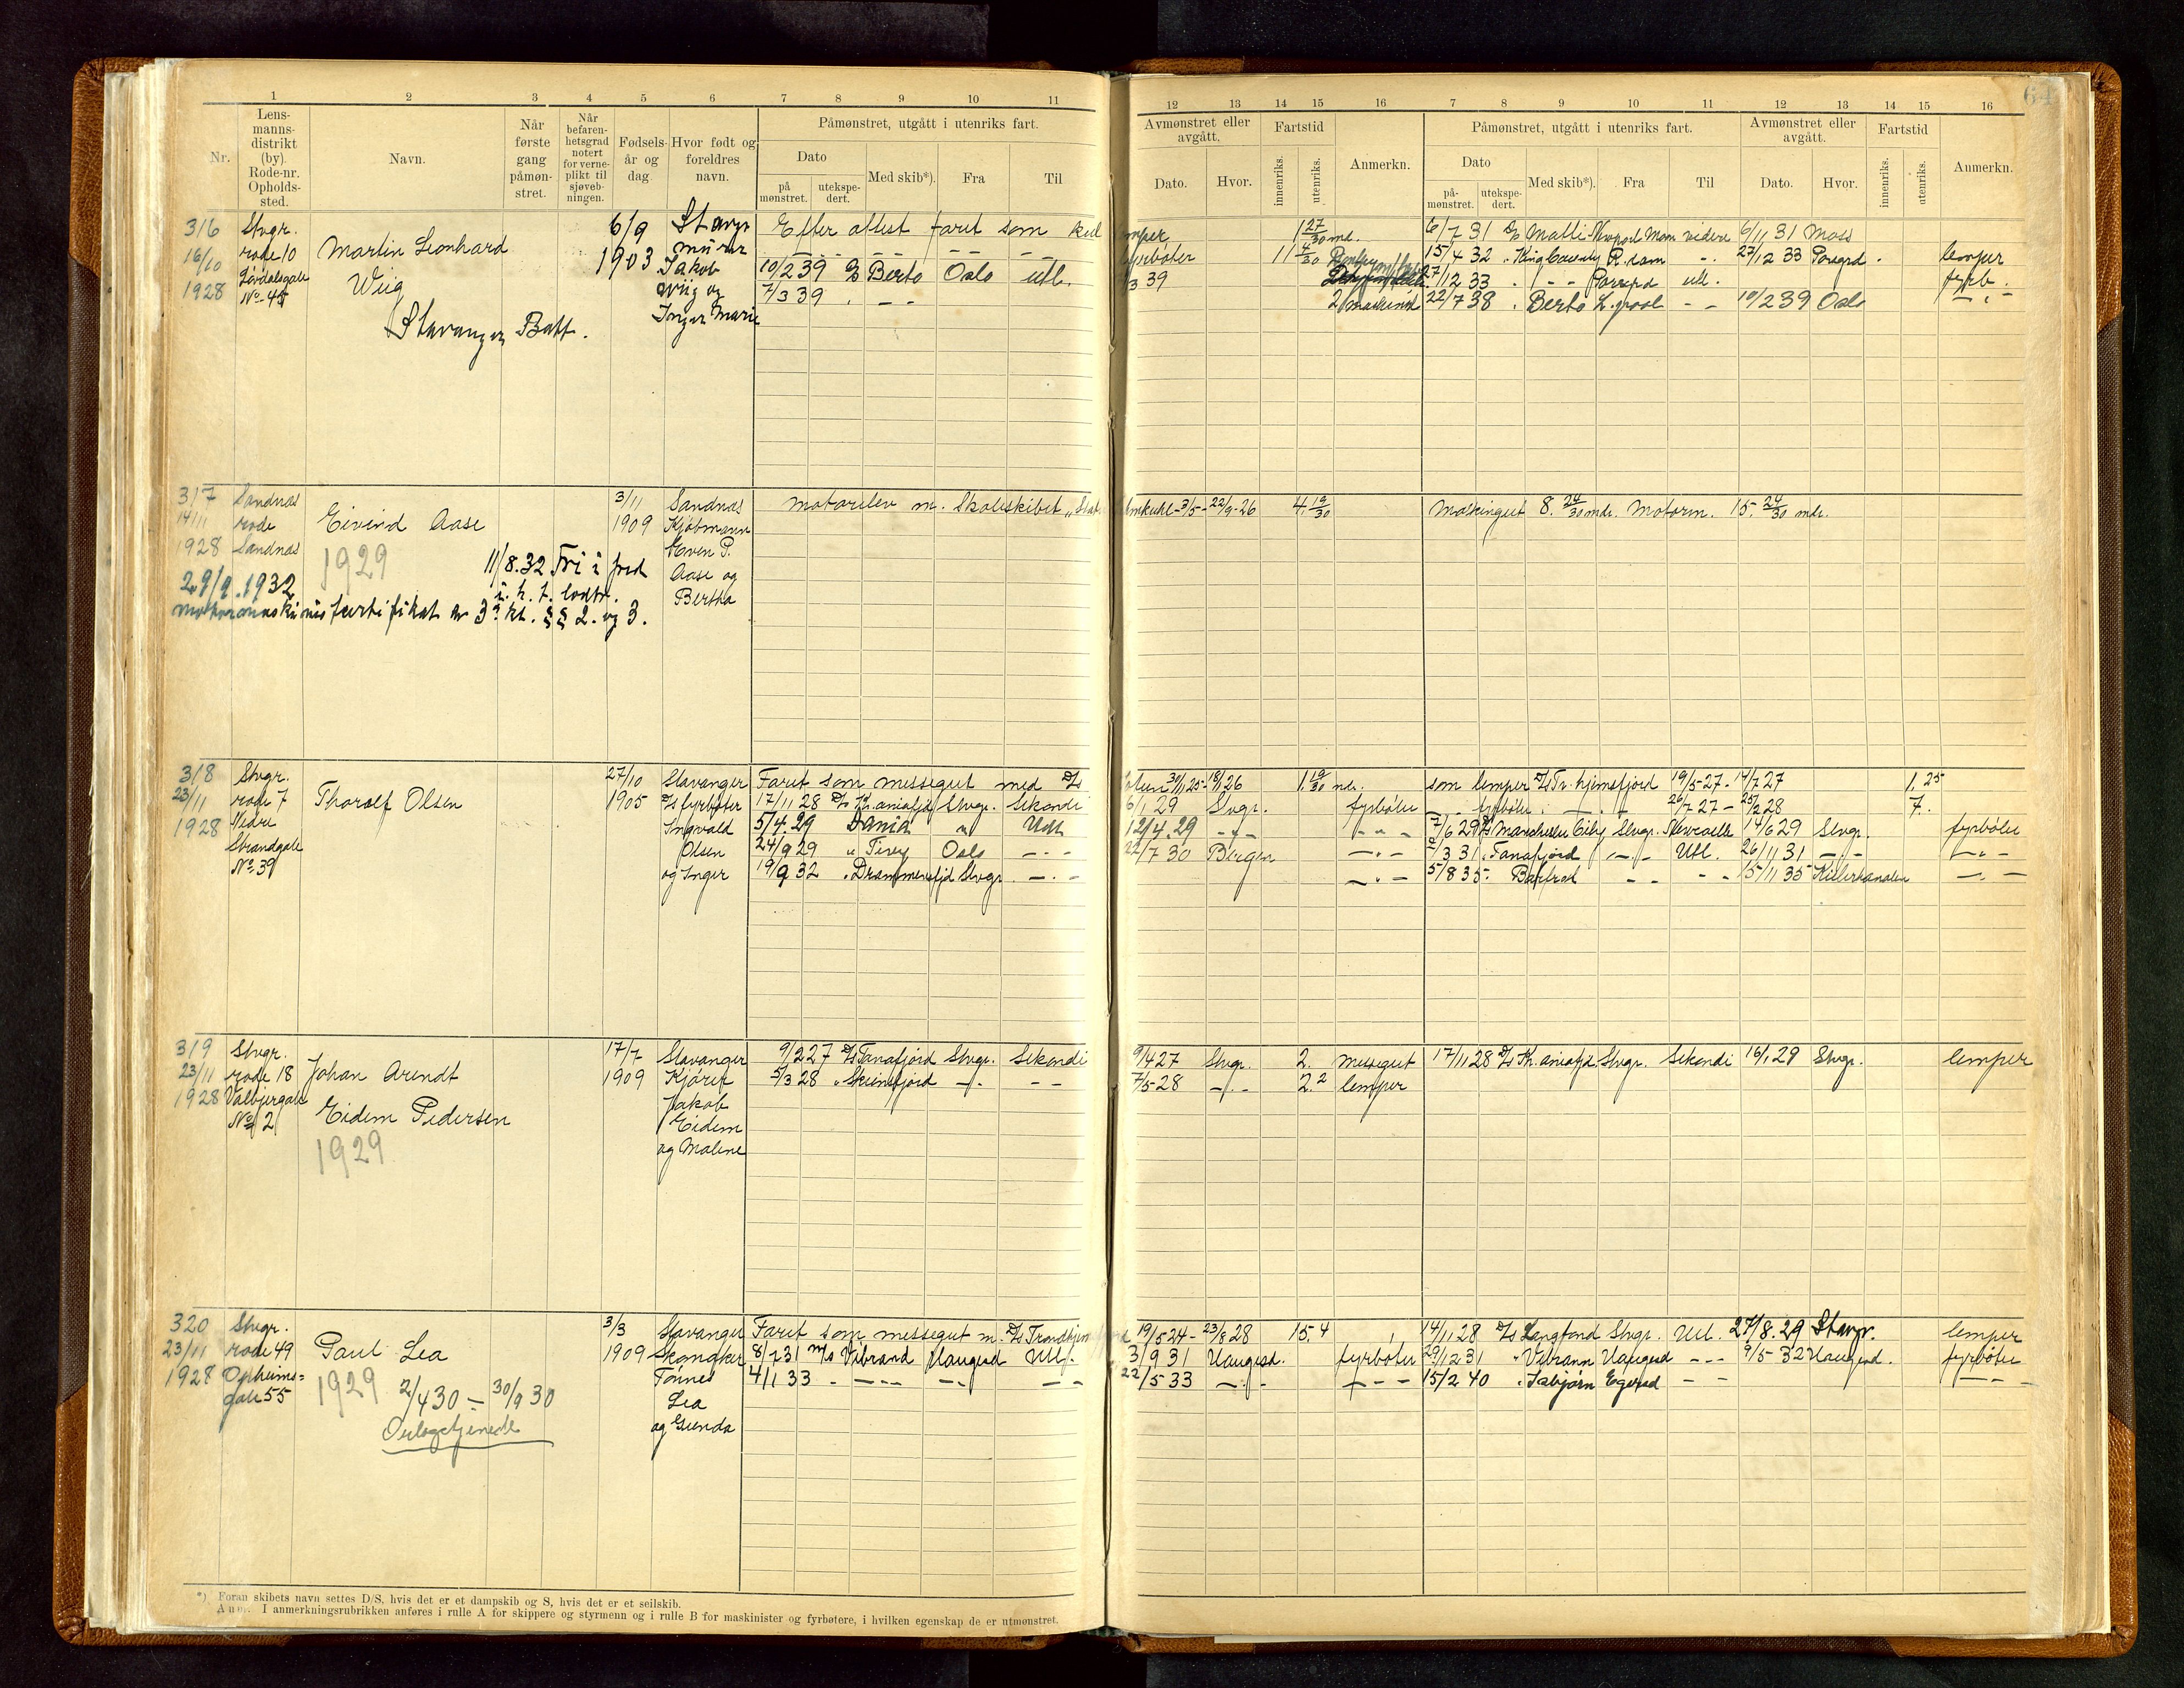 64
1 2 3 4 5 6 7 8 9 10 11 12 13 14 15 16 7 8 9 10 11 12 13 14 15 16
Nr.
Lens-
manns-
distrikt
(by).
Rode-nr.
Opholds-
sted.
Navn.
Når
første
gang
påmøn-
stret.
Når
befaren-
hetsgrad
notert
for verne-
plikt til
sjøveb-
ningen.
Fødsels-
år og
dag.
Hvor født og
foreldres
navn.
Påmønstret, utgått i utenriks fart.
Dato
på
mønstret.
utekspe-
dert.
Med skib*).
Fra
Til
Avmønstret eller
avgått.
Dato.
Hvor.
Fartstid
innenriks.
utenriks.
Anmerkn.
Påmønstret, utgått i utenriks fart.
Dato
på-
mønstret.
utekspe-
dert.
Med skib*).
Fra
Til
Avmønstret eller
avgått.
Dato.
Hvor.
Fartstid
innenriks.
utenriks.
Anmerkn.
316
16/10
1928
Stvgr.
rode 10
Lövdalsgate
No 45
Martin Leonhard
Wiig
Stavanger Batt.
6/9
1903
Stavgr
murer
Jakob
Wiig og
Inger Marie
Efter attest faret som kul
10/2 39 D/s Berto Oslo utl.
7/3 39 . — —
fyrbøter 11 4/30
3 39
1 27/30 md.
2 maskinist
6/7 31 D/s Malli Newport Mom videre 6/11 31 Moss
15/4 32 . King R.dam -. 27/12 33 Porsgrd. lemper
27/12 33 . - - Porsgrd utl. fyrb.
22/7 38 . Berto L.pool - - 10/2 39 Oslo -"-
317
14/11
1928
Sandnes
rode
Sandnes
Eivind Aase
1929
11/8.32 Fri i fred
i. h. t. lodtr.
29/9.1932
motormaskinistsertifikat av 3. kl. §§ 2. og 3.
3/11
1909
Sandnes
Kjøbmann
Even P.
Aase og
Bertha
motorelev m. Skoleskibet „Stat-
3/5-22/9-26 4. 19/30
Maskingut 8. 24/30 mdr. Motorm. 15. 24/30 mdr.
318
23/11
1928
Stvgr.
rode 7
Nedre
Strandgate
No 39
Thorolf Olsen
27/10
1905
Stavanger
D/s fyrbøter
Ingvald
Olsen
og Inger
Faret som messegut med D/s
17/11 28 D/s Kr.aniafjd Stvgr. Sekondi
5/4.29 Dania " Utl.
24/9 29 " Oslo -.-
19/9 32 . Drammensfjd Stvgr. -.-
30/11 25-18/1 26 1. 19/30 mdr.
6/1 29 Stvgr. fyrbøter
12/4.29 -"- -"-
22/7 30 Bergen -"-
-"-
som lemper D/s Tr.hjemsfjord 19/5-27-14/7 27 1. 25
- " - fyrbøter - " - 26/7 27 - 25/2 28 7.
7/6 29 D/s Manchester City Stvgr. 14/6 29 Stvgr. fyrbøter
2/3 31 . Tanafjord -"- Utl. 26/11 31 -.- -"-
5/8 35. Barfrost - - - - 15/11 35 Kielerkanalen -"-
319
23/11
1928
Stvgr.
rode 18
Valbjergate
No 2
Johan Arendt
Eidem Pedersen
1929
17/7
1909
Stavanger
Kjører
Jakob
Eidem
og Maline
9/2 27 D/s Tanafjord Stvgr. Sekondi
5/3 28 " Skiensfjord -.- - -
9/4 27 Stvgr. 2. messegut
7/5-28 -.- 2.2 lemper
17/11 28 D/s Kr.aniafjd. Stvgr. Sekondi 16/1 29 Stvgr. lemper
320
23/11
1928
Stvgr.
rode 49
Ophiums=
gate 55
Paul Lea
1929
2/4 30 - 30/9 30
Orlogstjeneste
3/3
1909
Stavanger
Skomaker
Tønnes
Lea
og Gunda
Faret som messegut m. D/s Trondhjemsfjord
8/7 31 M/s Vibrand Haugesd Utl.
4/1 33 - --- -.- - -
19/5 24 - 23/8 28 15.4
3/9 31 Haugesd. fyrbøter
22/5 33 -.- -"-
14/11 28 D/s Langfond Stvgr. Utl. 27/8.29 Stavgr. lemper
29/12 31 " Vibrann Haugesd --- 9/5-32 Haugesd. fyrbøter
15/2 40 . Isbjørn Egersd - - -"-
*) Foran skibets navn settes D/S, hvis det er et dampskib og S, hvis det er et seilskib.
Anm. I anmerkningsrubrikken anføres i rulle A for skippere og styrmenn og i rulle B for maskinister og fyrbøtere, i hvilken egenskap de er utmønstret.